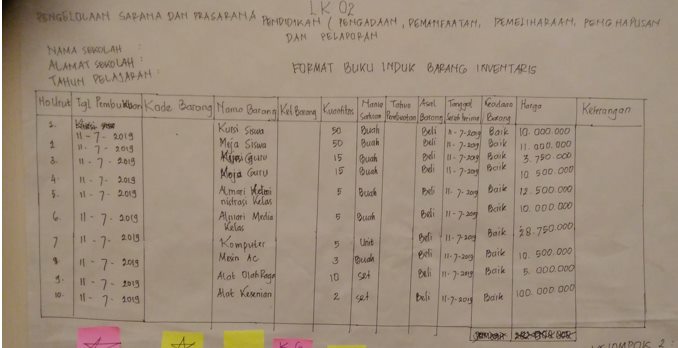 LK 02
PENGELOLAAN SARANA DAN PRASARANA PENDIDIKAN ( PENGADAAN, PEMANFAATAN, PEMELIHARAAN, PENGHAPUSAN
DAN PELAPORAN
NAMA SEKOLAH :
ALAMAT SEKOLAH :
TAHUN PELAJARAN :
FORMAT BUKU INDUK BARANG INVENTARIS
No Urut Tgl Pembukuan Kode Barang Nama Barang Ket. Barang Kuantitas Nama Satuan Tahun Pembuatan Asal Barang Tanggal Serah terima Keadaan Barang Harga Keterangan
1. 11 - 7 - 2019 Kursi Siswa 50 Buah Beli 11-7-2019 Baik 10.000.000
2 11 - 7 - 2019 Meja Siswa 50 Buah Beli 11-7-2019 Baik 11.000.000
3. 11 - 7 - 2019 Kursi Guru 15 Buah Beli 11-7-2019 Baik 3.750.000
4. 11 - 7 - 2019 Meja Guru 15 Buah Beli 11-7-2019 Baik 10.500.000
5. 11 - 7 - 2019 Almari nistrasi Kelas 5 Buah Beli 11-7-2019 Baik 12.500.000
6. 11 - 7 - 2019 Almari Media Kelas 5 Buah Beli 11-7-2019 Baik 10.000.000
7 11 - 7 - 2019 Komputer 5 Unit Beli 11-7-2019 Baik 28.750.000
8. 11 - 7 - 2019 Mesin AC 3 Buah Beli 11-7-2019 Baik 10.500.000
9. 11 - 7 - 2019 Alat Olah Raga 10 set Beli 11-7-2019 Baik 5.000.000
10. 11 - 7 - 2019 Alat Kesenian 2 set Beli 11-7-2019 Baik 100.000.000
KELOMPOK 2 :